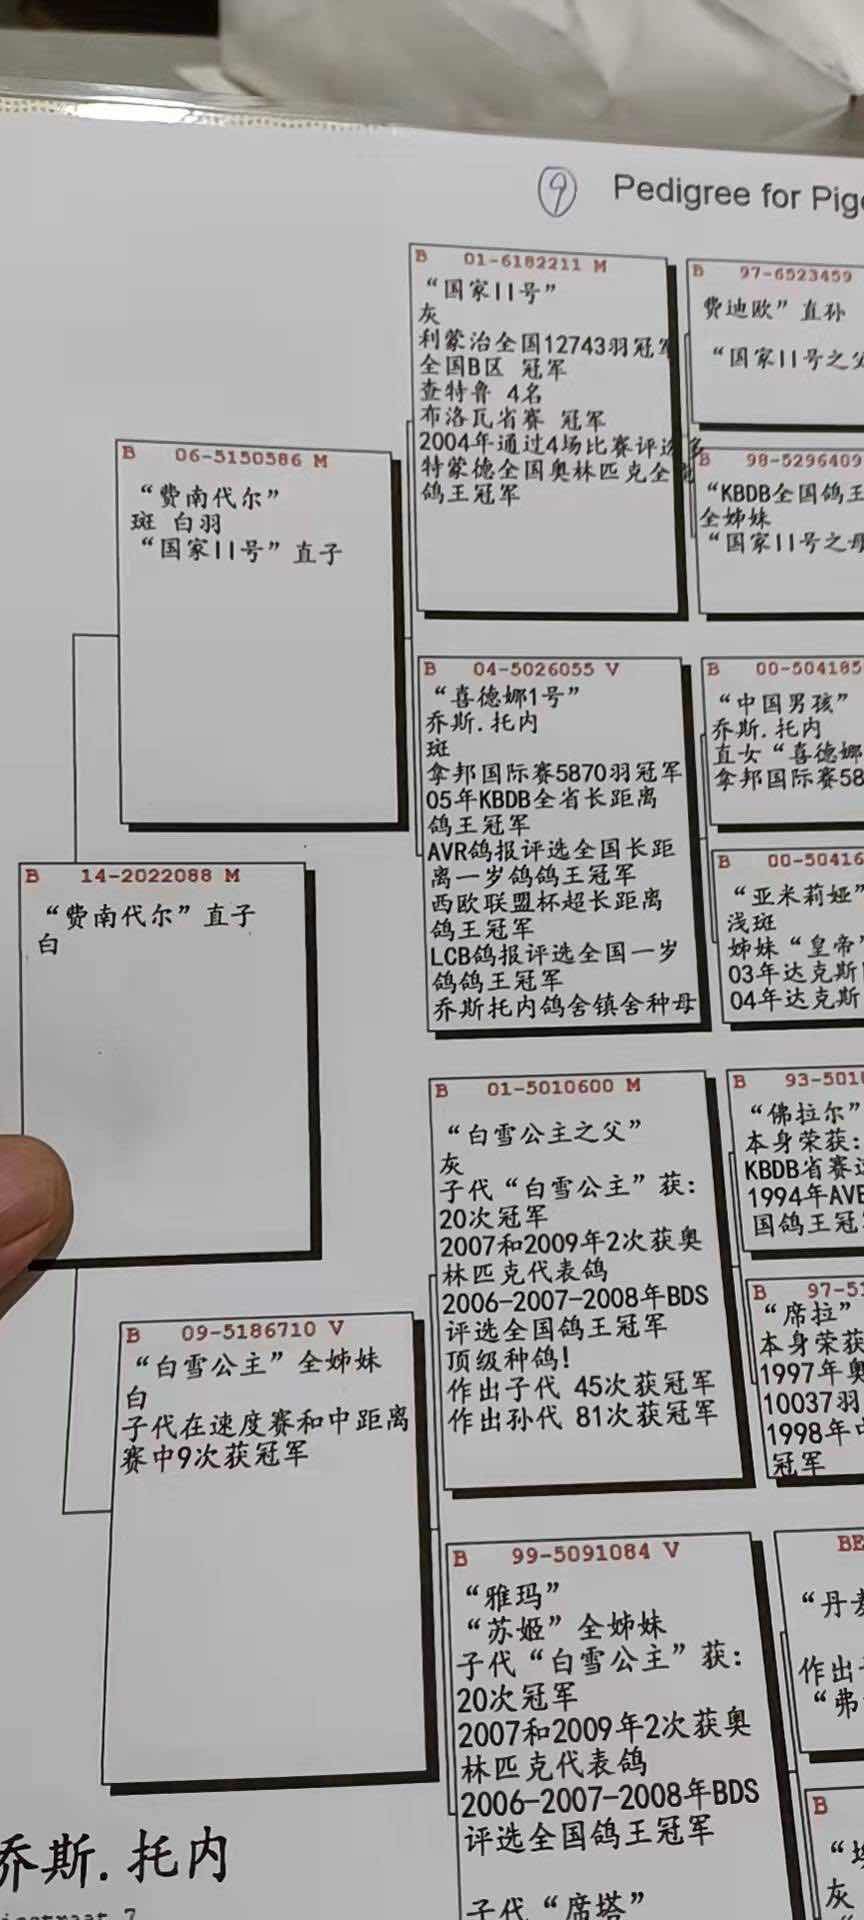 ⑨ Pedigree for
B 01-6182211 M
“国家II号”
灰
利蒙治全国12743羽冠军
全国B区 冠军
查特鲁 4名
布洛瓦省赛 冠军
2004年通过4场比赛评选多
特蒙德全国奥林匹克全能
鸽王冠军
B 97-6523459
费迪欧”直孙
“国家II号之父
B 98-5296409
“KBDB全国鸽王
全姊妹
“国家II号之母
B 06-5150586 M
“费南代尔”
斑 白羽
“国家II号”直子
B 04-5026055 V
“喜德娜1号”
乔斯.托内
斑
拿邦国际赛5870羽冠军
05年KBDB全省长距离
鸽王冠军
AVR鸽报评选全国长距
离一岁鸽鸽王冠军
西欧联盟杯超长距离
鸽王冠军
LCB鸽报评选全国一岁
鸽鸽王冠军
乔斯托内鸽舍镇舍种母
B 00-504185
“中国男孩”
乔斯.托内
直女“喜德娜
拿邦国际赛58
B 00-50416
“亚米莉娅”
浅斑
姊妹“皇帝”
03年达克斯
04年达克斯
B 14-2022088 M
“费南代尔”直子
白
B 01-5010600 M
“白雪公主之父”
灰
子代“白雪公主”获:
20次冠军
2007和2009年2次获奥
林匹克代表鸽
2006-2007-2008年BDS
评选全国鸽王冠军
顶级种鸽!
作出子代 45次获冠军
作出孙代 81次获冠军
B 93-501
“佛拉尔”
本身荣获:
KBDB省赛
1994年AVE
国鸽王冠
B 97-51
“席拉”
本身荣获
1997年奥
10037羽
1998年
冠军
B 09-5186710 V
“白雪公主”全姊妹
白
子代在速度赛和中距离
赛中9次获冠军
B 99-5091084 V
“雅玛”
“苏姬”全姊妹
子代“白雪公主”获:
20次冠军
2007和2009年2次获奥
林匹克代表鸽
2006-2007-2008年BDS
评选全国鸽王冠军
子代“席塔”
BE
“丹麦
作出
“弗
B
灰
乔斯.托内
7